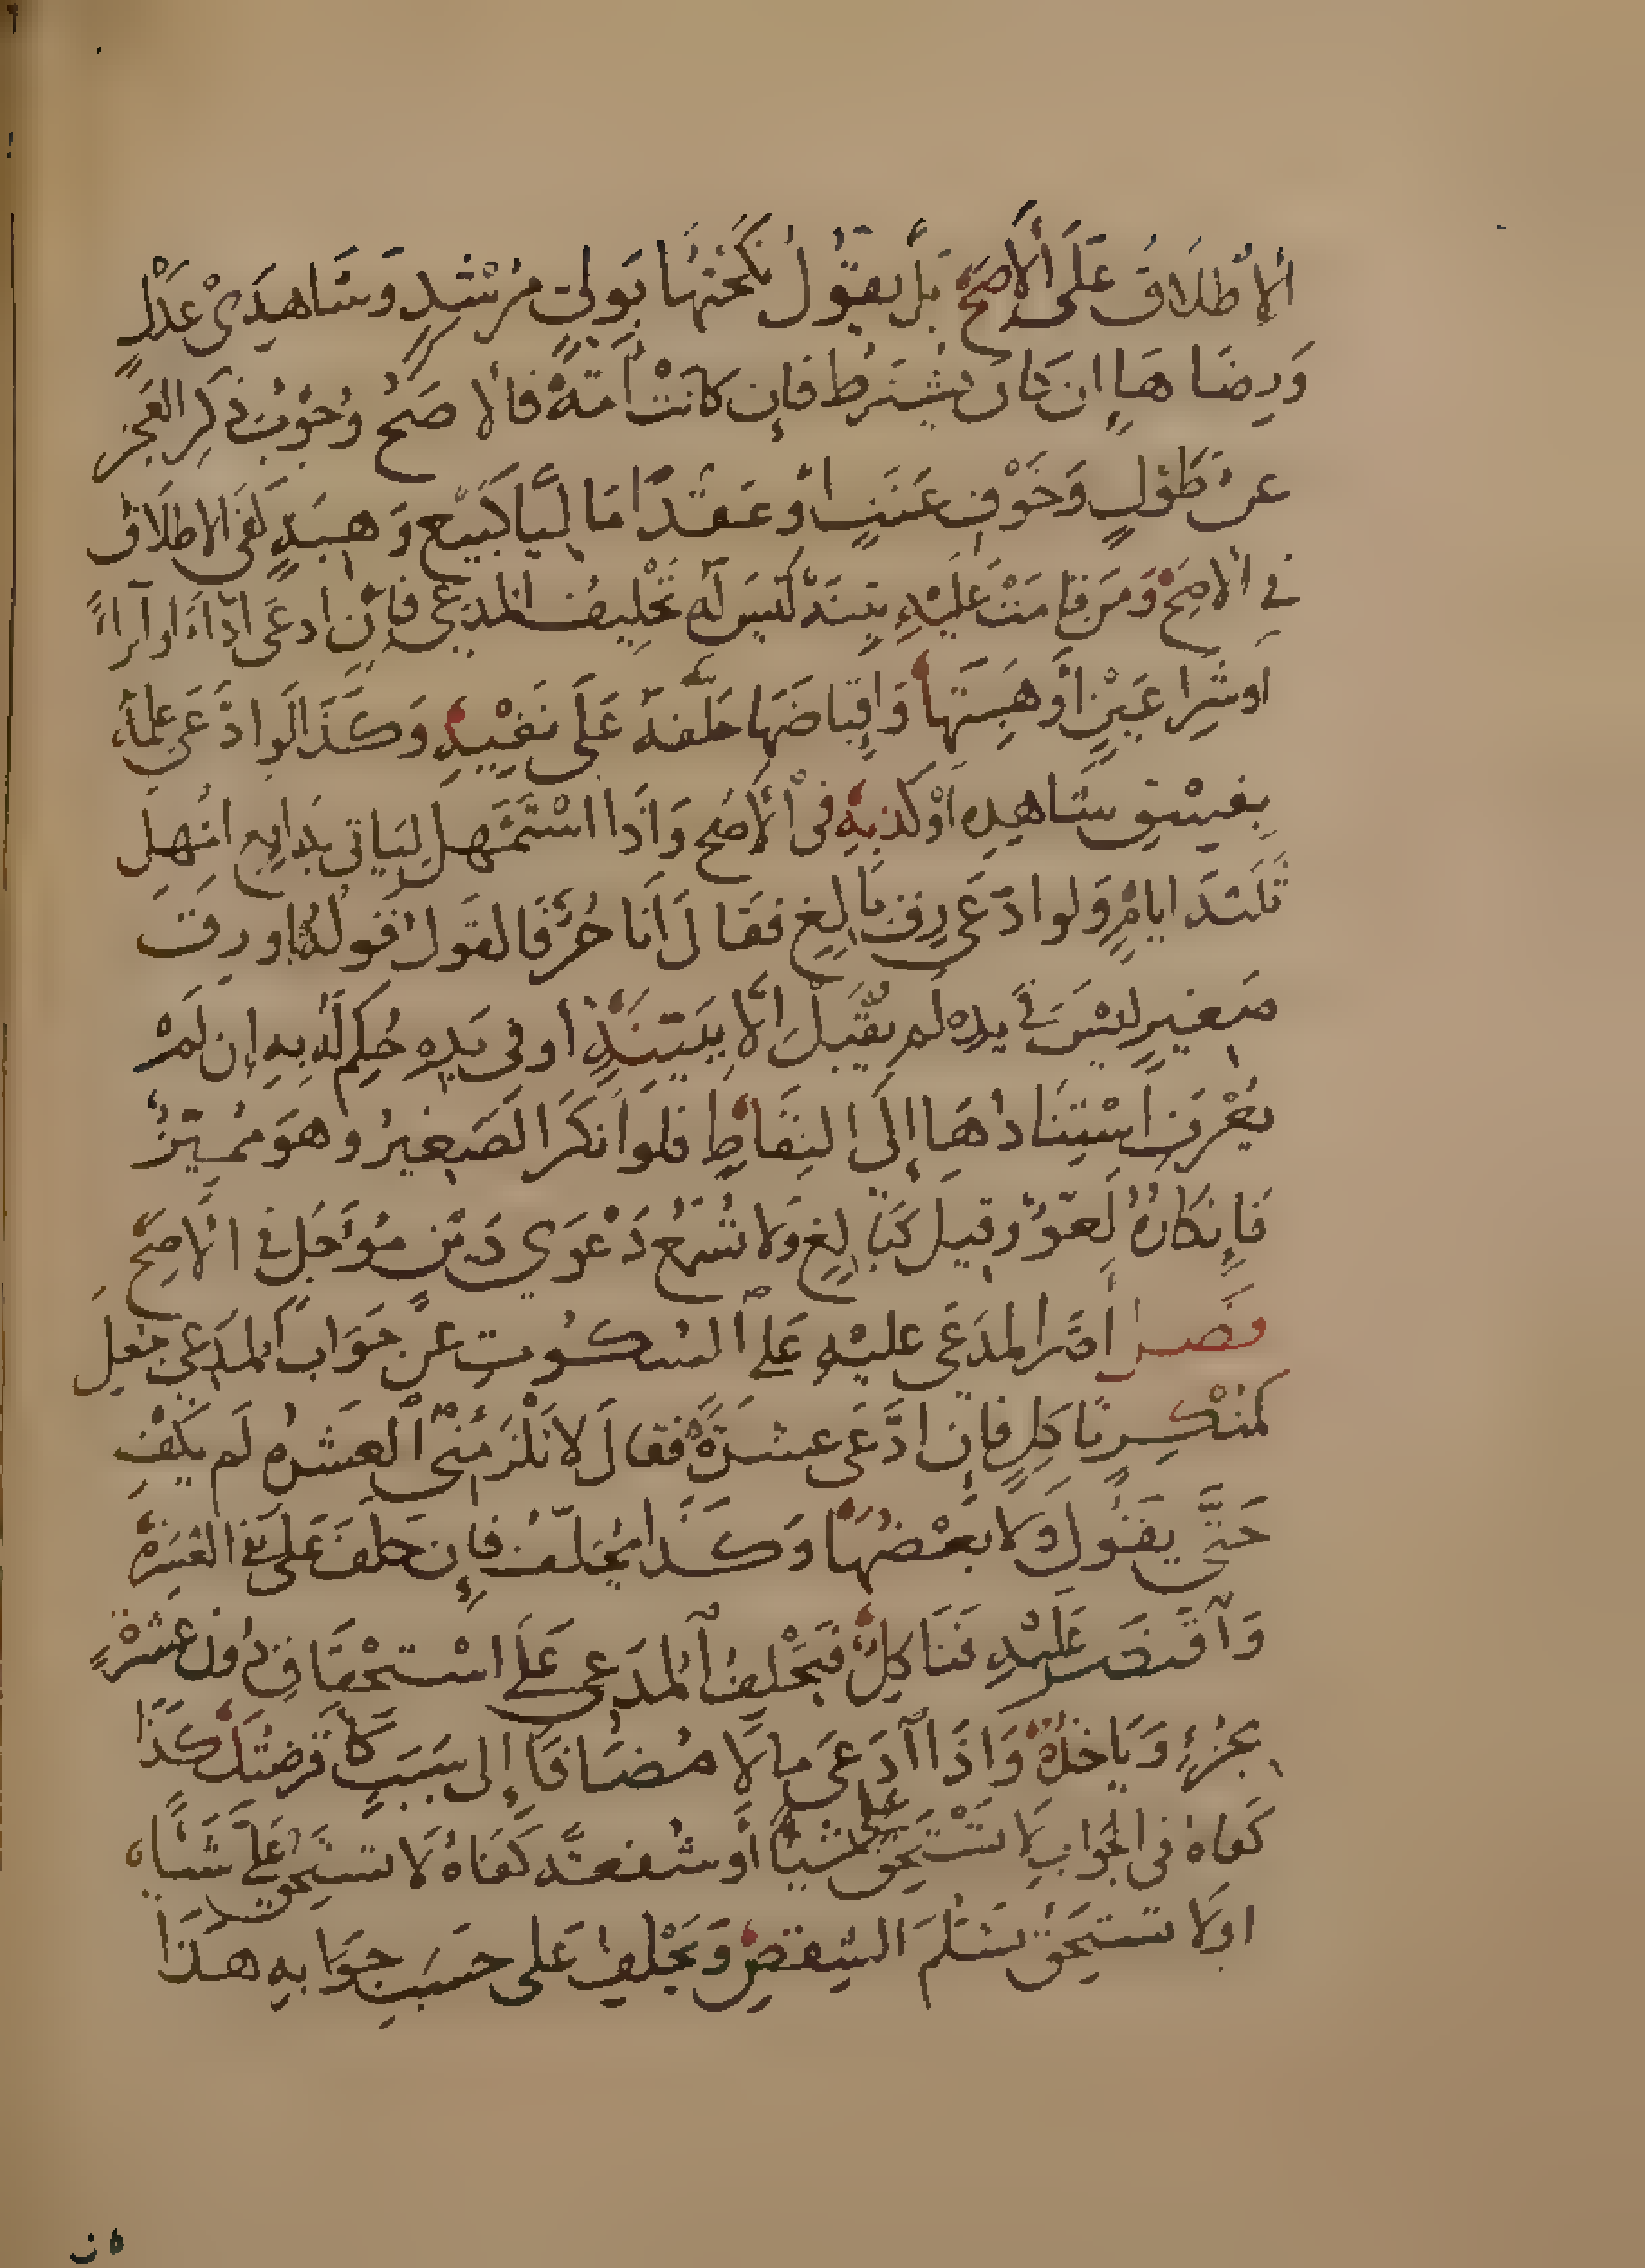 الإطلاقُ على الأصَحّ بل يقولُ نكحتها بوليٍّ مُرْشدٍ وَشاهدَىْ عَدْلٍ
وَرِضاها إن كان يُشترَط فإن كانَتْ أَمَةً فالأصحُّ وُجُوْبُ ذِكرِ العَجْز
عن طَوْلٍ وَخَوْفِ عَنَتٍ أوْ عَقْدًا مَاليًّا كَبَيْع وَهبَةٍ كَفَى الإطلَاقُ
في الأصحّ وَمَن قامَتْ عَلَيْهِ بيّنَةٌ لَيْسَ لَهُ تَحْلِيفُ المدّعي فإن ادعَى أدَاءً أو ابراءً
أو شِرَا عَيْنٍ أو هبَتَها وَإقباضَهَا حَلّفهُ عَلَى نَفْيِهِ وَكَذَا لَو ادّعَى علمَهُ
بِفِسْقِ شَاهِدِهِ أوْ كَذِبِهِ في الأصَح وَإذا اسْتَمْهل لِيَاتي بدافِعٍ امُهِلَ
ثَلثَةَ ايامٍ وَلو ادّعَى رِقّ بَالغٍ فقَالَ أنا حُرٌّ فالقَولُ قَولُهُ او رِقّ
صَغيرٍ ليْسَ في يدِهِ لم يُقْبَلْ الا بِبَيِّنَةٍ او في يَدِهِ حُكِمَ لهُ بِهِ إن لَمْ
يُعْرَف اسْتِنَادُهَا إلَى الْتِقَاطٍ فلو أنكَرَ الصَغيرُ وهوَ مُمَيّزٌ
فَإِنكَارُهُ لَغْوٌ وقيلَ كَبَالِغٍ وَلا تُسْمَعُ دَعْوَى دَيْنٍ مُؤَجّلٍ في الاصَحّ
فصل أصَرّ المدَعَى عليْهِ عَلَى السُّكُوتِ عَنْ جَوَاب المدَعي جُعِلَ
كمُنْكِرٍ نَاكِلٍ فإن ادَّعَى عشرَةً فقالَ لا تَلْزَمُنِي العَشرةُ لَم يَكْفِ
حَتَّى يقُولَ وَلا بَعْضُهَا وَكَذا يُحَلّفُ فإن حَلَفَ عَلَى نفي العَشرةِ
وَاقتَصَرَ عَلَيْهِ فَنَاكِلٌ فَيَحْلِفُ المدَعي عَلَى اسْتِحْقَاقِ دُونَ عَشرَةٍ
بجُزْءٍ وَيَاخُذُهُ وَإذَا ادَعَى مالًا مُضَافًا إلى سَبَبٍ كأقرضْتُكَ كَذَا
كَفاهُ في الجوَابِ لا تَسْتَحِقّ عليّ شَيْئًا أو شُفعَةً كَفَاهُ لا تَسْتَحِقّ عليّ شَيْئًا
اولا تستَحِقّ تَسْلِمَ الشِّقْصِ وَيَحْلِفُ عَلَى حسَب جَوَابِهِ هذَا